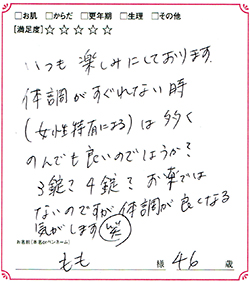 □お肌 □からだ □更年期 □生理 □その他
[満足度]☆☆☆☆☆
いつも楽しみにしております。
体調がすぐれない時
(女性特有による)は多く
のんでも良いのでしょうか?
3錠?4錠?お薬では
ないのですが、体調が良くなる
気がします(笑)
お名前(本名orペンネーム)
もも 様 46 歳